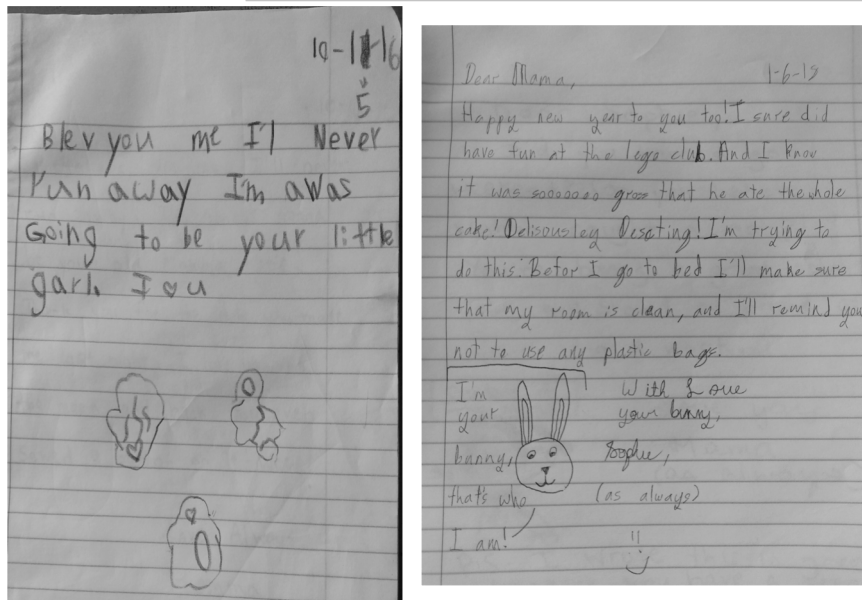 10-11-16
5
Blev you me I'll Never
run away I'm awas
Going to be your little
garl. I ♡ u
Dear Mama,
1-6-15
Happy new year to you too! I sure did
have fun at the lego club. And I know
it was sooooooo gross that he ate the whole
cake! Delisousley Descting! I'm trying to
do this: Befor I go to bed I'll make sure
that my room is clean, and I'll remind you
not to use any plastic bags.
I'm
your
bunny,
that's who
I am!
With Love
your bunny,
Sophie,
(as always)